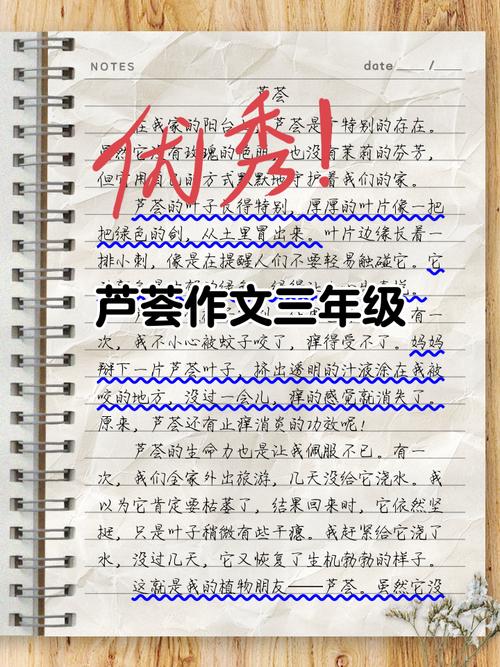 NOTES
date ____ / ____
芦荟
优秀！
在我家的阳台 芦荟是 特别的存在。
虽然它没有玫瑰的艳丽，也没有茉莉的芬芳，
但它用自己的方式默默地守护着我们的家。
芦荟的叶子长得特别，厚厚的叶片像一把
把绿色的剑，从土里冒出来。叶片边缘长着一
排小刺，像是在提醒人们不要轻易触碰它。它
芦荟作文三年级
有一
次，我不小心被蚊子咬了，痒得受不了。妈妈
掰下一片芦荟叶子，挤出透明的汁液涂在我被
咬的地方，没过一会儿，痒的感觉就消失了。
原来，芦荟还有止痒消炎的功效呢！
芦荟的生命力也是让我佩服不已。有一
次，我们全家外出旅游，几天没给它浇水。我
以为它肯定要枯萎了，结果回来时，它依然坚
挺，只是叶子稍微有些干瘪。我赶紧给它浇了
水，没过几天，它又恢复了生机勃勃的样子。
这就是我的植物朋友——芦荟。虽然它没